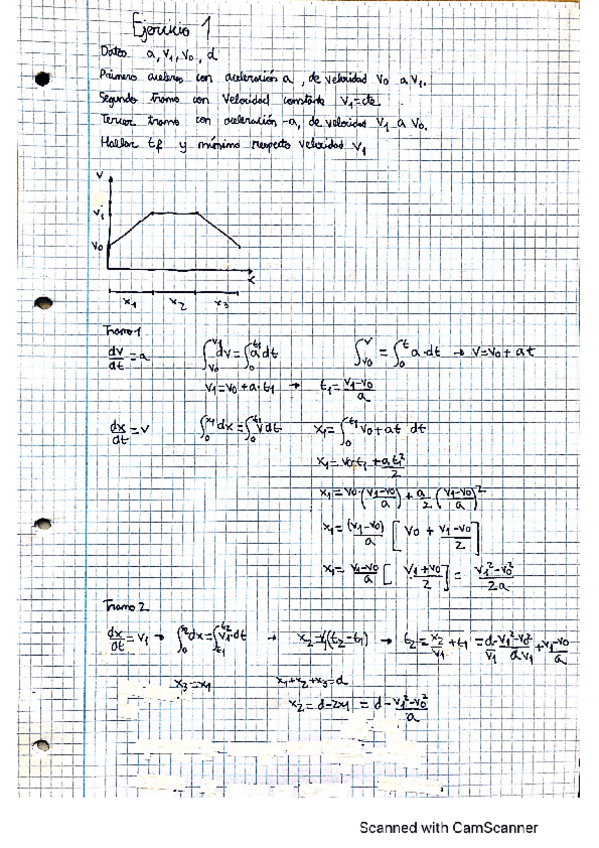 Ejercicio 1
Datos a, v₁, v₀, d
Primero acelero con aceleración a, de velocidad v₀ a v₁.
Segundo tramo con velocidad constante v₁=cte.
Tercer tramo con aceleración -a, de velocidad v₁ a v₀.
Hallar tf y mínimo respecto velocidad v₁
v
v₁
v₀
x
x₁ x₂ x₃
Tramo 1
dv/dt = a ∫_{v₀}^{v₁} dv = ∫_0^{t₁} a dt ∫_{v₀}^{v} = ∫_0^t a·dt → v=v₀+at
v₁=v₀+a·t₁ → t₁=(v₁-v₀)/a
dx/dt = v ∫_0^{x₁} dx = ∫_0^{t₁} v dt x₁=∫_0^{t₁} v₀+at dt
x₁=v₀·t₁+a t₁²/2
x₁=v₀·((v₁-v₀)/a)+a/2 ((v₁-v₀)/a)²
x₁=(v₁-v₀)/a [v₀+(v₁-v₀)/2]
x₁=(v₁-v₀)/a [(v₁+v₀)/2]=(v₁²-v₀²)/2a
Tramo 2
dx/dt = v₁ → ∫_0^{x₂} dx = ∫_{t₁}^{t₂} v₁·dt → x₂=v₁(t₂-t₁) → t₂=x₂/v₁+t₁ =d/v₁-(v₁²-v₀²)/av₁+(v₁-v₀)/a
x₃=x₁ x₁+x₂+x₃=d
x₂=d-2x₁ =d-(v₁²-v₀²)/a
Scanned with CamScanner